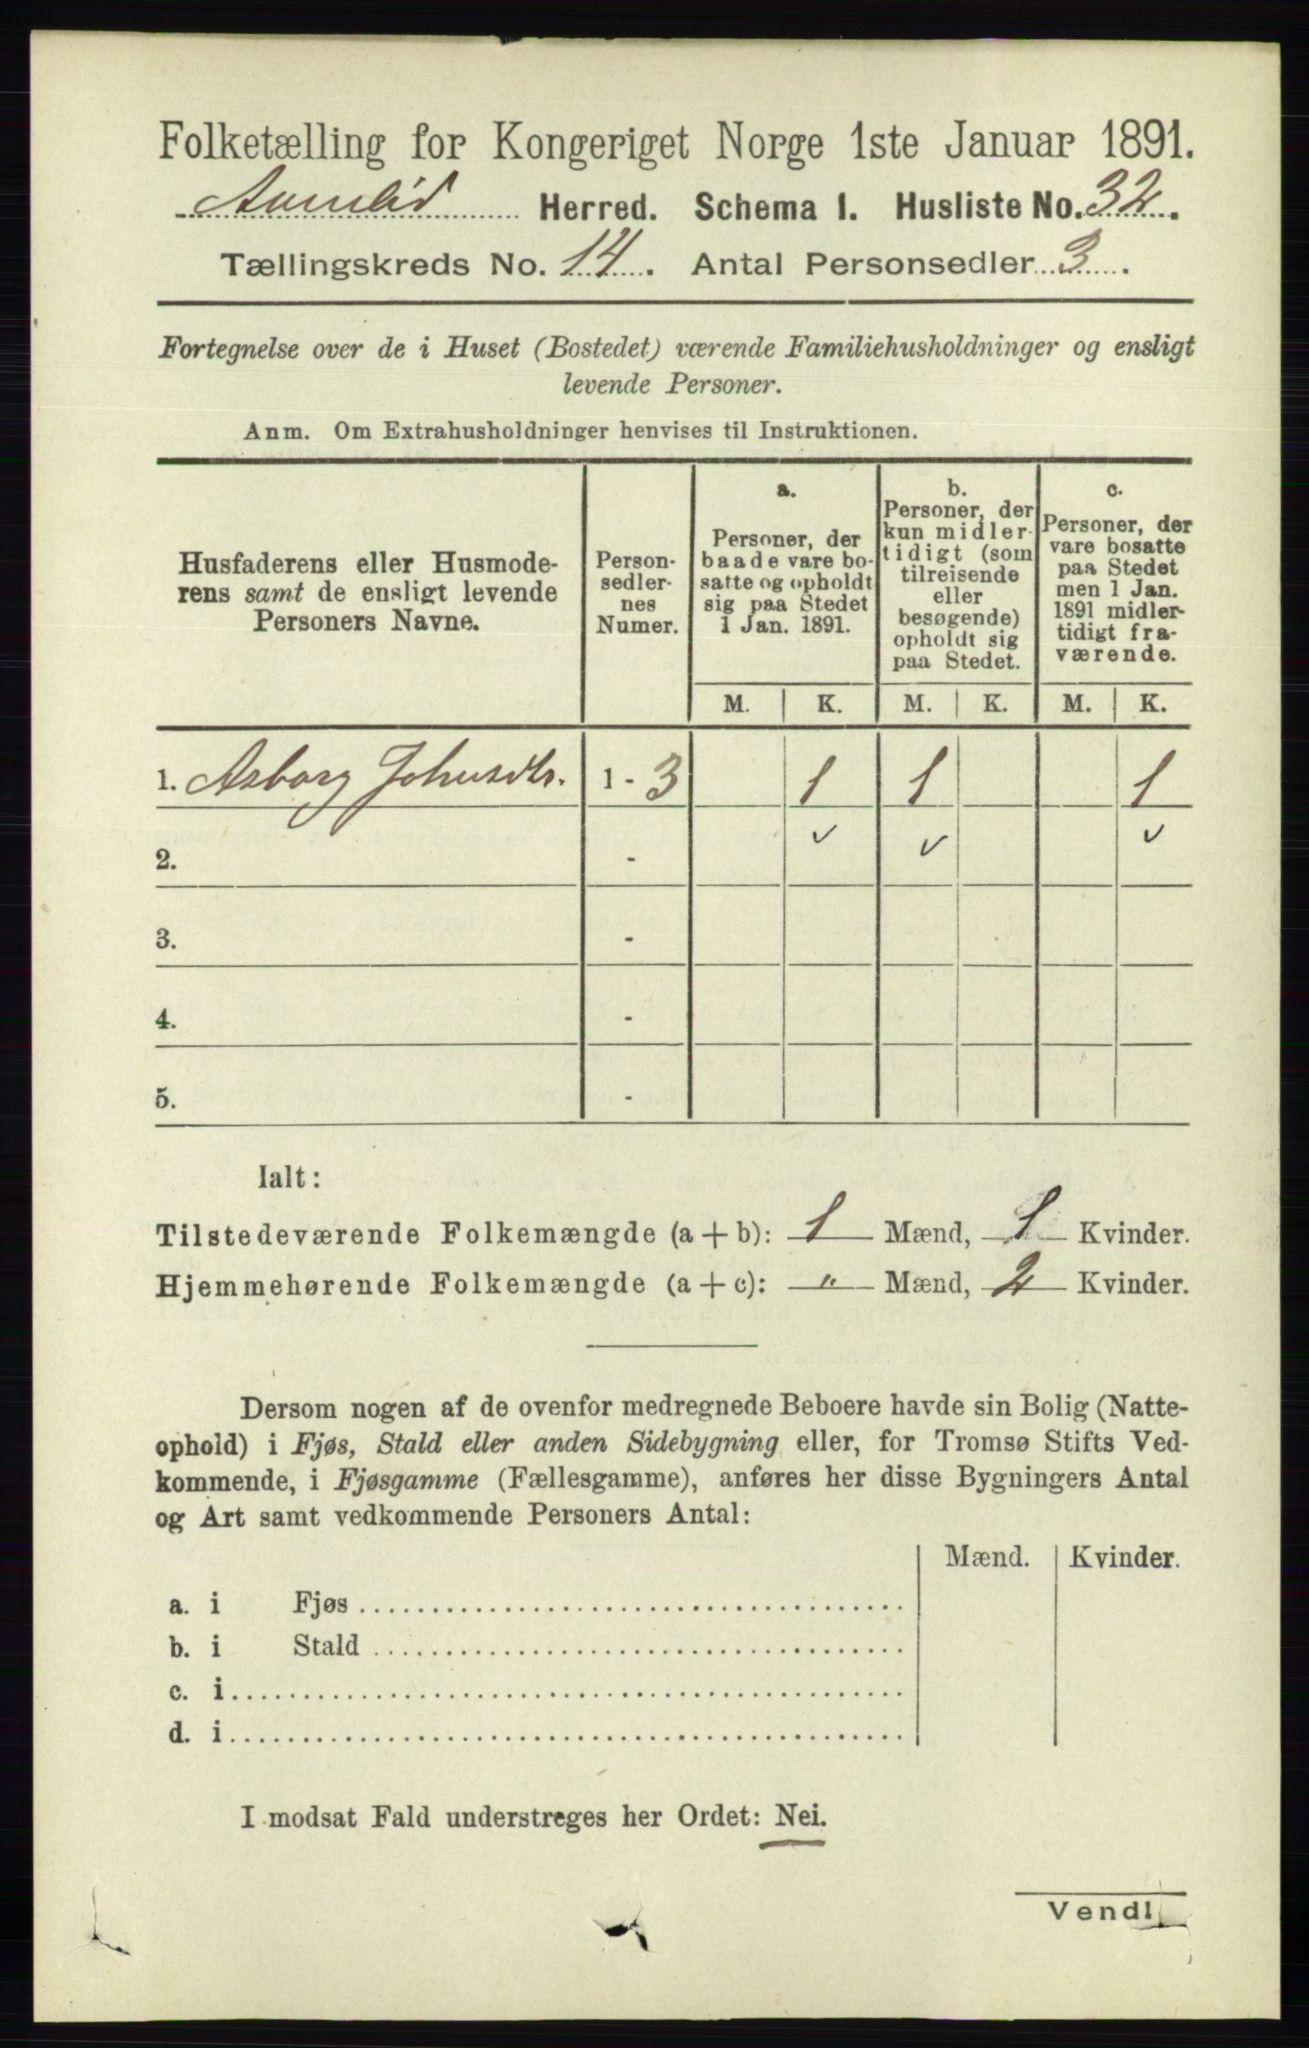 Folketælling for Kongeriget Norge 1ste Januar 1891.
Aamlid Herred. Schema I. Husliste No. 32.
Tællingskreds No. 14. Antal Personsedler 3.
Fortegnelse over de i Huset (Bostedet) værende Familiehusholdninger og ensligt
levende Personer.
Anm. Om Extrahusholdninger henvises til Instruktionen.
Husfaderens eller Husmode-
rens samt de ensligt levende
Personers Navne.
Person-
sedler-
nes
Numer.
a.
Personer, der
baade vare bo-
satte og opholdt
sig paa Stedet
1 Jan. 1891.
b.
Personer, der
kun midler-
tidigt (som
tilreisende
eller
besøgende)
opholdt sig
paa Stedet.
c.
Personer, der
vare bosatte
paa Stedet
men 1 Jan.
1891 midler-
tidigt fra-
værende.
M. K. M. K. M. K.
1. Asborg Johnsdtr. 1 - 3 1 1 1
2. - ✓ ✓ ✓
3. -
4. -
5. -
Ialt:
Tilstedeværende Folkemængde (a + b): 1 Mænd, 1 Kvinder.
Hjemmehørende Folkemængde (a + c): " Mænd, 2 Kvinder.
Dersom nogen af de ovenfor medregnede Beboere havde sin Bolig (Natte-
ophold) i Fjøs, Stald eller anden Sidebygning eller, for Tromsø Stifts Ved-
kommende, i Fjøsgamme (Fællesgamme), anføres her disse Bygningers Antal
og Art samt vedkommende Personers Antal:
Mænd. Kvinder.
a. i Fjøs
b. i Stald
c. i
d. i
I modsat Fald understreges her Ordet: Nei.
Vend!